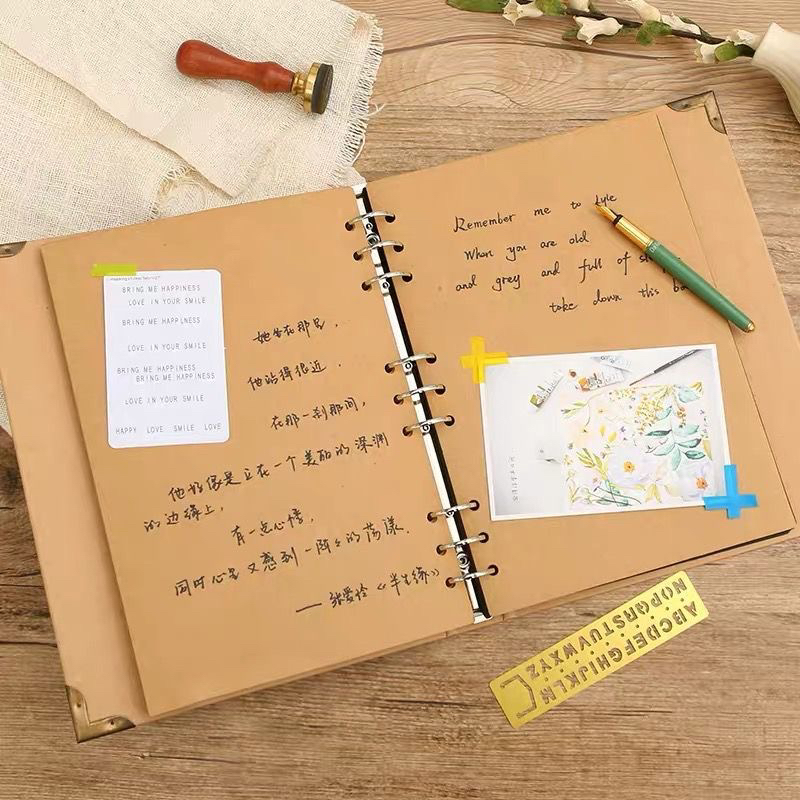 BRING ME HAPPINESS
LOVE IN YOUR SMILE
BRING ME HAPPINESS
LOVE IN YOUR SMILE
BRING ME HAPPINESS
BRING ME HAPPINESS
LOVE IN YOUR SMILE
HAPPY LOVE SMILE LOVE
她坐在那里,
他站得很近,
在那一刹那间,
他好像是立在一个美丽的深渊
的边缘上,
有一点心悸,
同时心里又感到一阵阵的荡漾.
—— 张爱玲《半生缘》
Remember me to
When you are old
and grey and full of
take down this
ABCDEFGHIJKLM
NOPQRSTUVWXYZ